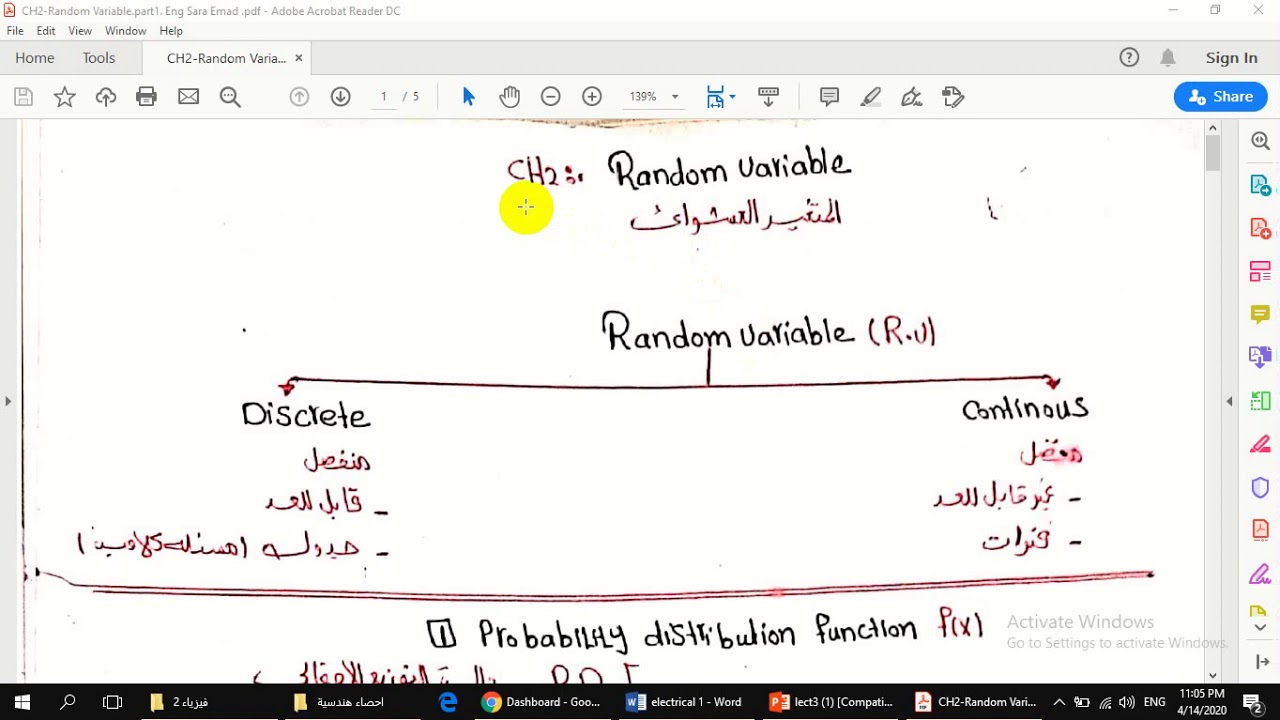 CH2-Random Variable.part1. Eng Sara Emad .pdf - Adobe Acrobat Reader DC
File Edit View Window Help
Home Tools CH2-Random Varia... ×
Sign In
1 / 5
139%
Share
CH2:. Random Variable
المتغير العشوائى
Random variable (R.v)
Discrete
منفصل
- قابل للعد
- جدوله
Continous
متصل
- غير قابل للعد
- فترات
1 Probability distribution function f(x)
Activate Windows
Go to Settings to activate Windows.
فيزياء 2
احصاء هندسية
Dashboard - Goo...
electrical 1 - Word
lect3 (1) [Compati...
CH2-Random Vari...
ENG
11:05 PM
4/14/2020
2